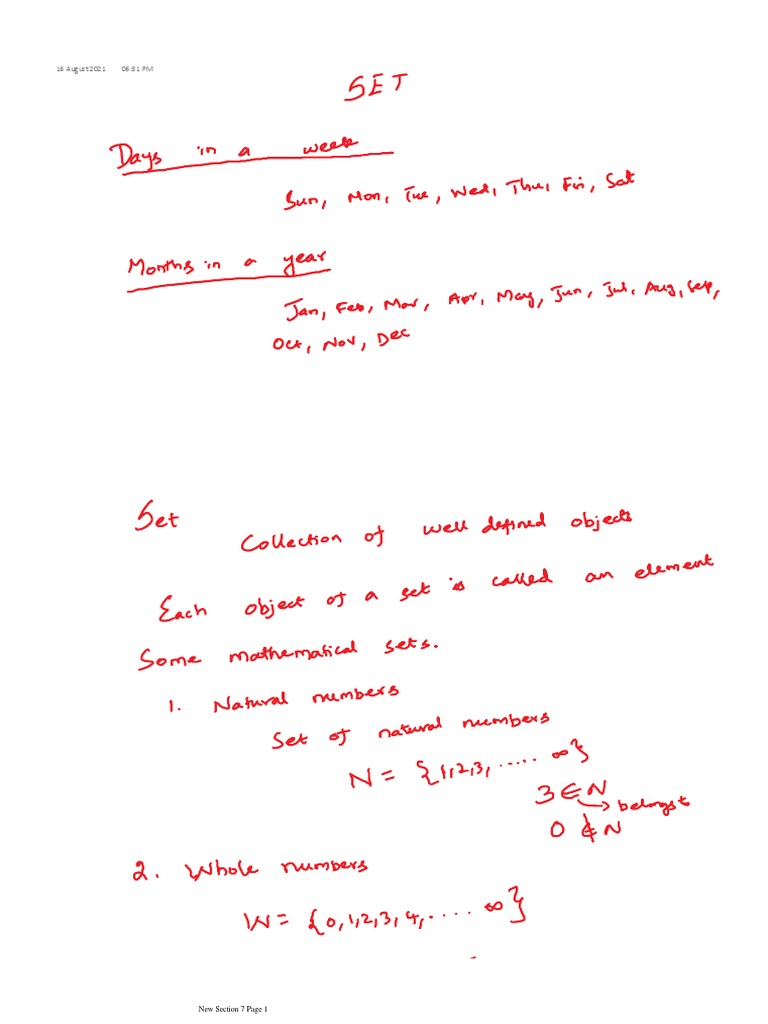 16 August 2021 06:31 PM
SET
Days in a week
Sun, Mon, Tue, Wed, Thu, Fri, Sat
Months in a year
Jan, Feb, Mar, Apr, May, Jun, Jul, Aug, Sep,
Oct, Nov, Dec
Set
Collection of well defined objects
Each object of a set is called an element
Some mathematical sets.
1. Natural numbers
Set of natural numbers
N = {1,2,3, ..... ∞}
3 ∈ N
→ belongst
0 ∉ N
2. Whole numbers
W = {0,1,2,3,4,.... ∞}
New Section 7 Page 1